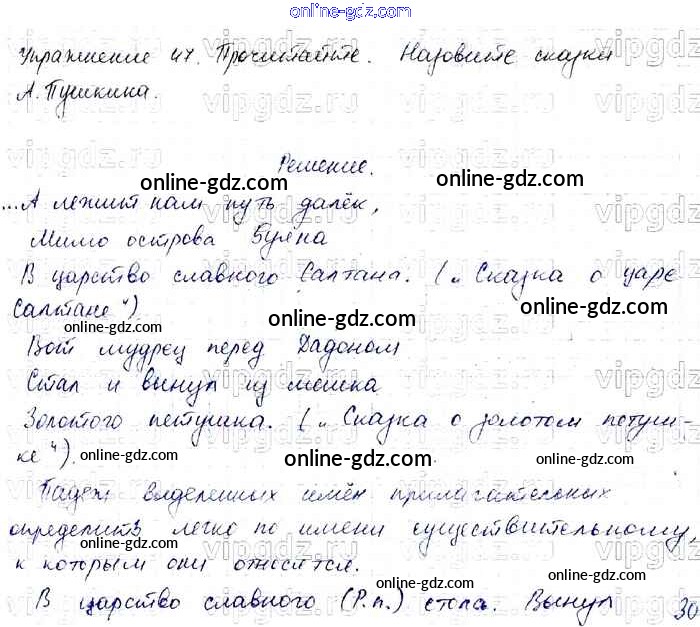 online-gdz.com
Упражнение 47. Прочитайте. Назовите сказки
А. Пушкина.
Решение.
online-gdz.com online-gdz.com
...А лежит нам путь далёк,
Мимо острова Буяна
В царство славного Салтана. („Сказка о царе
Салтане“)
online-gdz.com online-gdz.com online-gdz.com
Вот мудрец перед Дадоном
Стал и вынул из мешка
Золотого петушка. („Сказка о золотом петуш-
ке“).
online-gdz.com online-gdz.com online-gdz.com
Падеж выделенных имён прилагательных
определить легко по имени существительному,
к которым они относятся.
online-gdz.com online-gdz.com online-gdz.com
В царство славного (Р.п.) стола. Вынул 30
vipgdz.ru